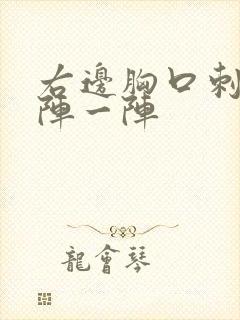 右邊胸口刺
陣一陣
龍會琴